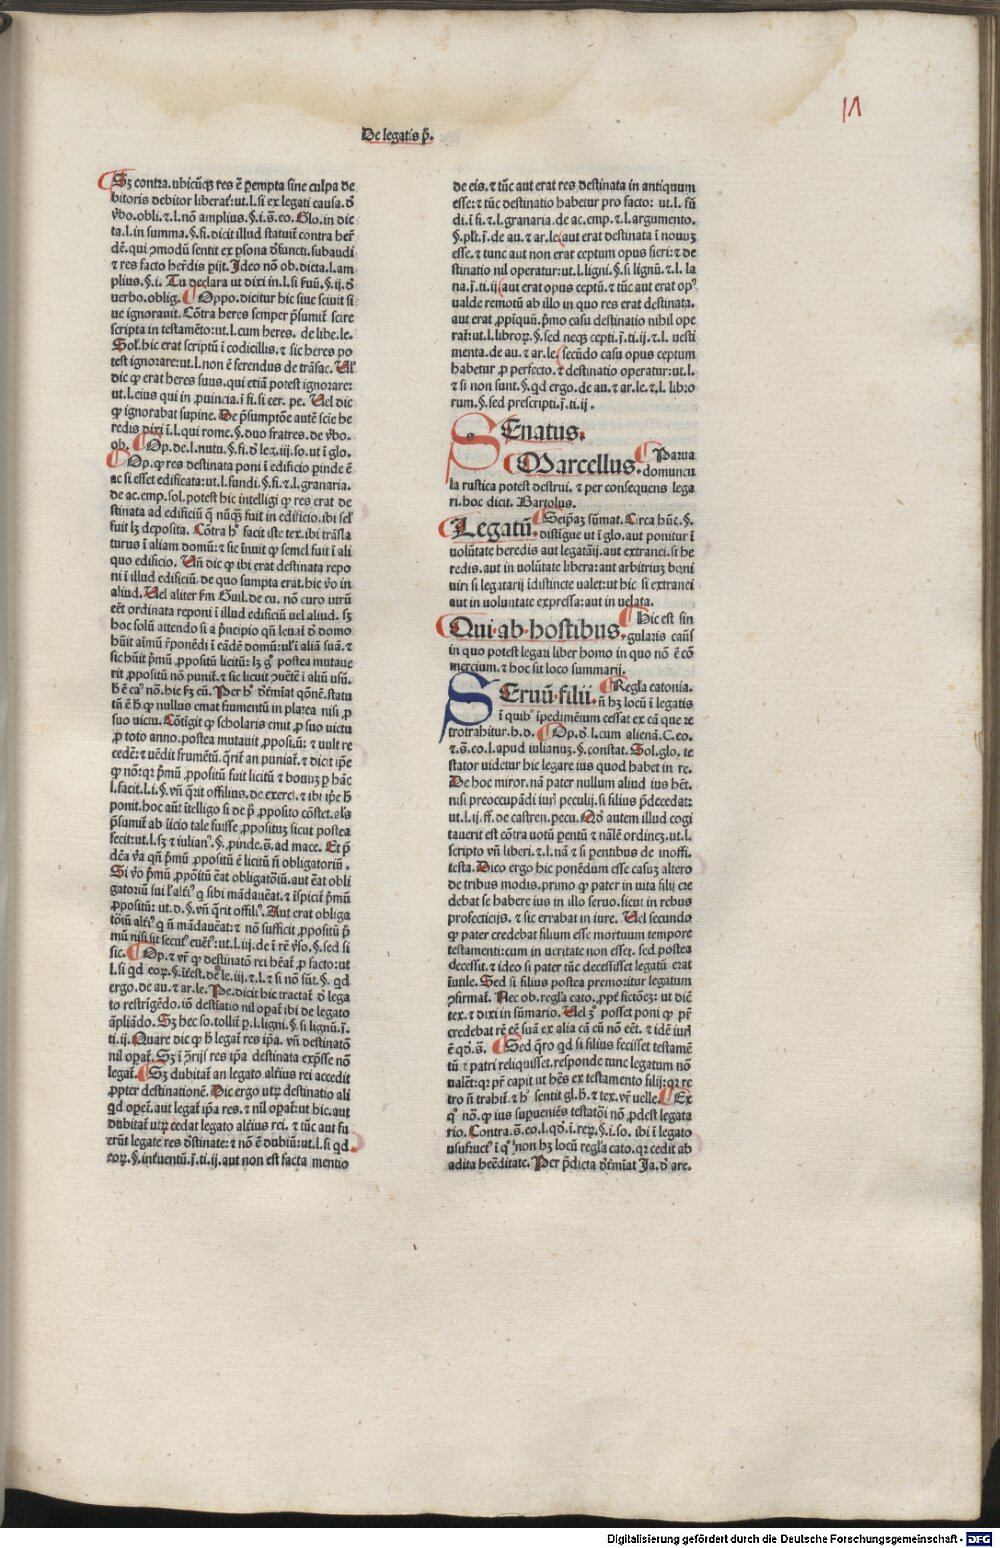 De legatis p̄.
Sꝫ contra. vbicūqꝫ res ē pempta sine culpa de
bitoris debitor liberat̄: ut.l.si ex legati causa. ď
v̓bo.obli.⁊.l.nō amplius.§.i.s̄.eo. Glo.in dic
ta.l.in summa.§.fi.dicit illud statuit̄ contra her̄
dē.qui ꝯmodū sentit ex p̱sona ď̄functi.subaudi
⁊ res facto her̄dis p̱ijt. Ideo nō ob.dicta.l.am
plius.§.i. Tu declara ut dixi in.l.si seruū.§.ij.ď
verbo.oblig. Oppo.dicitur hic siue sciuit si
ue ignorauit. Cōtra heres semper p̄sumit̄ scire
scripta in testamēto: ut.l.cum heres. de libe.le.
Sol̄.hic erat scriptū i codicillis.⁊ sic heres po
test ignorare: ut.l.non ē ferendus de trāsac. Vel̄
dic ꝙ erat heres suus.qui etiā potest ignorare:
ut.l.eius qui in ꝓuincia.ī fi.si cer. pe. Vel dic
ꝙ ignorabat supine. De p̄sumptōe autē scie he
redis dixi ī.l.qui rome.§.duo fratres.de v̓bo.
ob. Op.de.l.nutu.§.fi.ď leg.iij.so.ut ī glo.
Op.ꝙ res destinata poni ī edificio pinde ē
ac si esset edificata: ut.l.fundi.§.fi.⁊.l.granaria.
de ac.emp.sol.potest hic intelligi ꝙ res erat de
stinata ad edificiū q̄ nūq̄ꝫ fuit in edificio.ibi sel̄
fuit lꝫ deposita. Cōtra h̓ facit iste tex.ibi trāsla
turus ī aliam domū: ⁊ sic īnuit ꝙ semel fuit ī ali
quo edificio. Vn̄ dic ꝙ ibi erat destinata repo
ni ī illud edificiū.de quo sumpta erat.hic v̓o in
aliud. Vel aliter s̄m Guil.de cu. nō curo utrū
eēt ordinata reponi ī illud edificiū uel aliud. sꝫ
hoc solū attendo si a p̄ncipio qn̄ leuat̄ ď domo
hūit aīmū r̄ponēdi ī eādē domū: ul̄ ī aliā suā.⁊
sic hūit p̄mū ꝓpositū licitū: lꝫ g̊ postea mutaue
rit ꝓpositū nō punit̄.⁊ sic licuit ꝯuētē ī aliū usū.
h̄ ē ca' nō.hic sꝫ eū. Per h̓ ď̄tmīat q̄onē.statu
tū ē h̄ ꝙ nullus emat frumentū in platea nisi ꝓ
suo uictu. Cōtigit ꝙ scholaris emit ꝓ suo uictu
ꝓ toto anno.postea mutauit ꝓposi.ū: ⁊ uult re
cedē: ⁊ uēdit frumētū.q̄rit̄ an puniat̄.⁊ dicit ip̄e
ꝙ nō: qꝛ p̄mū ꝓpositū fuit licitū ⁊ bonuꝫ p hāc
l.facit.l.i.§.vn̄ q̄rit offilius.de exerci.⁊ ibi ip̄e h̄
ponit.hoc aūt ītelligo si de p̄ ꝓposito cōstet.al̄s
p̄sumit̄ ab īicio tale fuisse ꝓposituꝫ sicut postea
fecit: ut.l.sꝫ ⁊ iulian'.§.ꝓinde.s̄.ad mace. Et p̄
dēa v̓a qn̄ p̄mū ꝓpositū ē licitū n̄ obligatoriū.
Si v̓o p̄mū ꝓpōitū ēat obligatōiū.aut ēat obli
gatoriū sui ul̄ alt̄i' q̄ sibi mādauēat.⁊ īspicit̄ p̄mū
ꝓpositū: ut.d.§.vn̄ q̄rit offili'. Aut erat obliga
tōiū alt̄i' q̄ n̄ mādauēat: ⁊ nō sufficit ꝓpositū p̄
mū nisi sit secut' euēt': ut.l.iij.de ī rē v̓so.§.sed si
sic. Op.⁊ vr̄ ꝙ destinatō rei hēat̄ ꝓ facto: ut
l.si qd eoꝝ.§.īt̄est.de le.iij.⁊.l.⁊ si nō sūt.§. qd
ergo.de au.⁊ ar.le. Pe.dicit hic tractat̄ ď lega
to restrīgēdo.iō destīatio nil opat̄ ibi de legato
āpliādo. Sꝫ hec so.tollit̄ p.l.ligni.§.si lignū.ī.
ti.ij. Quare dic ꝙ h̄ legat̄ res ip̄a. vn̄ destinatō
nil opat̄. Sꝫ ī ꝯrijs res ip̄a destinata exp̄sse nō
legat̄. Sꝫ dubitat̄ an legato alt̄ius rei accedit
ꝓpter destinationē. Dic ergo utꝝ destinatio ali
qd opet̄.aut legat̄ ip̄a res.⁊ nil opat̄: ut hic.aut
dubitat̄ utꝝ cedat legato alt̄ius rei.⁊ tūc aut fu
erūt legate res ď̄stinate: ⁊ nō ē dubiū: ut.l.si qd
eoꝝ.§.īnt̄uentū.ī.ti.ij.aut non est facta mentio
de eis.⁊ tūc aut erat res destinata in antiquum
esse: ⁊ tūc destinatio habetur pro facto: ut.l. fū
di.ī fi.⁊.l.granaria.de ac.emp.⁊.l.argumento.
§.pl̄t.ī.de au.⁊ ar.le(aut erat destinata ī nouuꝫ
esse.⁊ tunc aut non erat ceptum opus fieri: ⁊ de
stinatio nil operatur: ut.l.ligni.§.si lignū.⁊.l. la
na.ī.ti.ij(aut erat opus ceptū.⁊ tūc aut erat op'
valde remotū ab illo in quo res erat destinata.
aut erat ꝓpīquū.p̄mo casu destinatio nihil ope
rat̄: ut.l.libroꝝ.§.sed neqꝫ cepti.ī.ti.ij.⁊.l. uesti
menta.de au.⁊ ar.le(secūdo casu opus ceptum
habetur ꝓ perfecto.⁊ destinatio operatur: ut.l.
⁊ si non sunt.§.qd ergo.de au.⁊ ar.le.⁊.l. libro
rum.§.sed prescripti.ī.ti.ij.
SEnatus.
Marcellus. Parua
domuncu
la rustica potest destrui.⁊ per consequens lega
ri.hoc dicit. Bartolus.
Legatū. Seip̄aꝫ sūmat. Circa hūc.§.
distīgue ut ī glo.aut ponitur ī
uolūtate heredis aut legatāij.aut extranei.si he
redis.aut in uolūtate libera: aut arbitriuꝫ boni
uiri si legatarij īdistincte ualet: ut hic si extranei
aut in uoluntate expressa: aut in uelata.
Qui ab hostibus. Hic est sin
gularis caūs
in quo potest legari liber homo in quo nō ē cō
mercium.⁊ hoc sit loco summarij.
SEruū filii. Regl̄a catonia.
n̄ hꝫ locū ī legatis
ī quib' īpedimētum cessat ex cā que re
trotrahitur.h.d. Op.ď.l.cum alienā.C.eo.
⁊.s̄.eo.l.apud iulianuꝫ.§.constat. Sol.glo. te
stator uidetur hic legare ius quod habet in re.
De hoc miror.nā pater nullum aliud ius hēt.
nisi preoccupādi iur̄ peculij.si filius p̄decedat:
ut.l.ij.ff.de castren.pecu. Qd̄ autem illud cogi
tauerit est cōtra uotū p̱entū ⁊ nālē ordineꝫ.ut.l.
scripto vn̄ liberi.⁊.l.nā ⁊ si p̱entibus de inoffi.
testa. Dico ergo hic ponēdum esse casuꝫ altero
de tribus modis.primo ꝙ pater in uita filij cre
debat se habere ius in illo seruo.sicut in rebus
profecticijs.⁊ sic errabat in iure. Vel secundo
ꝙ pater credebat filium esse mortuum tempore
testamenti: cum in ueritate non esset. sed postea
decessit.⁊ ideo si pater tūc decessisset legatū erat
īutile. Sed si filius postea premoritur legatum
ꝯfirmat̄. Nec ob.regl̄a cato.ꝓpt̄ fictōeꝫ: ut dic̄
tex.⁊ dixi in sūmario. Vel ꝫ̊ posset poni ꝙ pr̄
credebat rē eē suā ex alia cā cū nō eēt.⁊ idē iur̄
ē qď.s̄. Sed q̄ro qd si filius fecisset testamē
tū ⁊ patri reliquisset.responde tunc legatum nō
ualēt: qꝛ pr̄ capit ut hēs ex testamento filij: qꝛ re
tro n̄ trahit̄.⁊ h̓ sentit gl.h̄.⁊ tex.vr̄ uelle. Ex
q' nō.ꝙ ius supueniēs testatōi nō ꝓdest legata
rio. Contra.s̄.eo.l.qď.ī.reꝝ.§.i.so. ibi ī legato
usufruct' ī q' non hꝫ locū regl̄a cato.qꝛ cedit ab
adita hēditate. Per p̄dicta ď̄tmīat Ja.ď are.
Digitalisierung gefördert durch die Deutsche Forschungsgemeinschaft - DFG